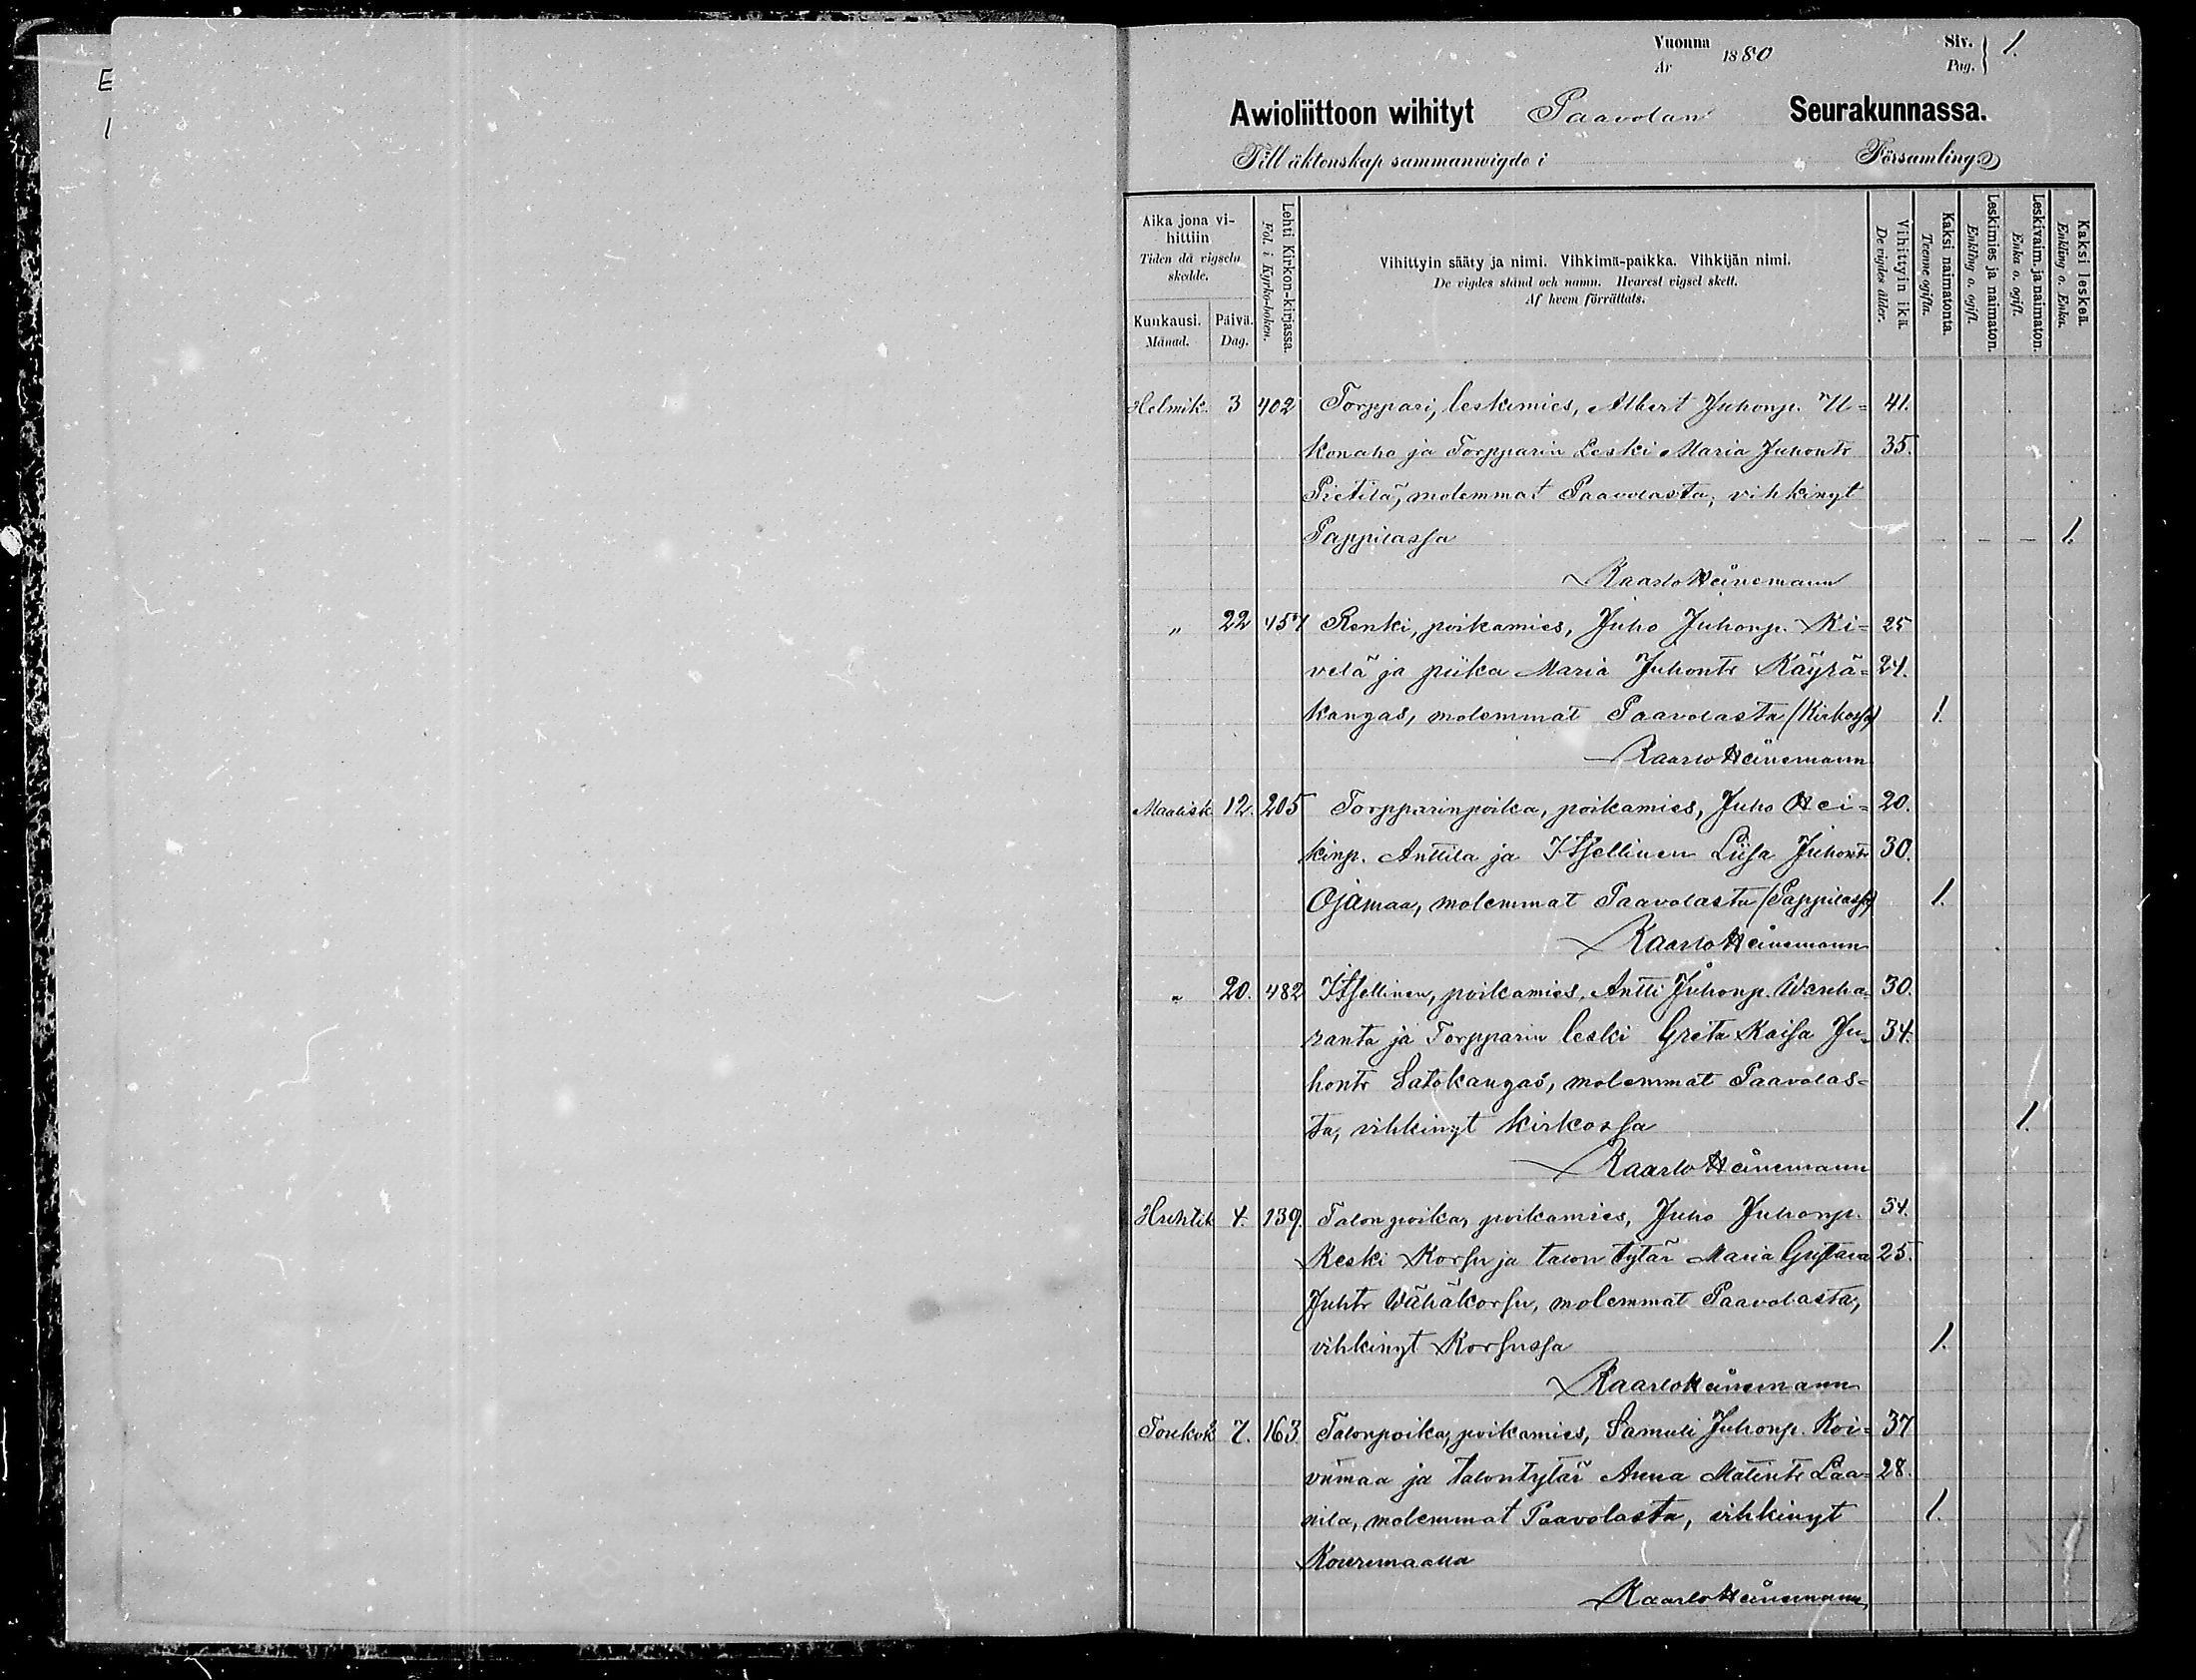 E
1
Vuonna 1880 Siv. 1.
År Pag.
Awioliittoon wihityt Paavolan Seurakunnassa.
Till äktenskap sammanwigde i Församling
Aika jona vi-
hittiin
Tiden då vigseln
skedde.
Kuukausi. Päivä.
Månad. Dag.
Lehti Kirkon-kirjassa.
Fol. i Kyrko-boken.
Vihittyin sääty ja nimi. Vihkimä-paikka. Vihkijän nimi.
De vigdes stånd och namn. Hvarest vigsel skett.
Af hvem förrättats.
Vihittyin ikä.
De vigdes ålder.
Kaksi naimatonta.
Tvenne ogifta.
Leskimies ja naimaton.
Enkling o. ogift.
Leskivaim. ja naimaton.
Enka o. ogift.
Kaksi leskeä.
Enkling o. Enka.
Helmik. 3 402 Torppari, leskimies, Albert Juhonp. U= 41.
konaho ja Torpparin Leski Maria Juhontr 35.
Pietilä, molemmat Paavolasta, vihkinyt
Pappilassa - - - 1.
Kaarlo Heinemann
" 22 457 Renki, poikamies, Juho Juhonp. Ki= 25
velä ja piika Maria Juhontr Käyrä= 24.
kangas, molemmat Paavolasta (Kirkossa) 1.
Kaarlo Heinemann
Maalisk. 12. 205 Torpparinpoika, poikamies, Juho Hei= 20.
kinp. Anttila ja Itsellinen Liisa Juhontr 30.
Ojamaa, molemmat Paavolasta (Pappilassa) 1.
Kaarlo Heinemann
" 20. 482 Itsellinen, poikamies, Antti Juhonp. Wanha= 30.
ranta ja Torpparin leski Greta Kaisa Ju= 34.
hontr Satokangas, molemmat Paavolas=
ta, vihkinyt kirkossa 1.
Kaarlo Heinemann
Huhtik 4. 139. Talonpoika, poikamies, Juho Juhonp. 34.
Keski Korsu ja talon tytär Maria Gustava 25.
Juhtr Wähäkorsu, molemmat Paavolasta,
vihkinyt Korsussa 1.
Kaarlo Heinemann
Toukok 7. 163. Talonpoika, poikamies, Samuli Juhonp. Koi= 37
vumaa ja Talontytär Anna Matintr Laa= 28.
nila, molemmat Paavolasta, vihkinyt 1.
Kaarlo Heinemann